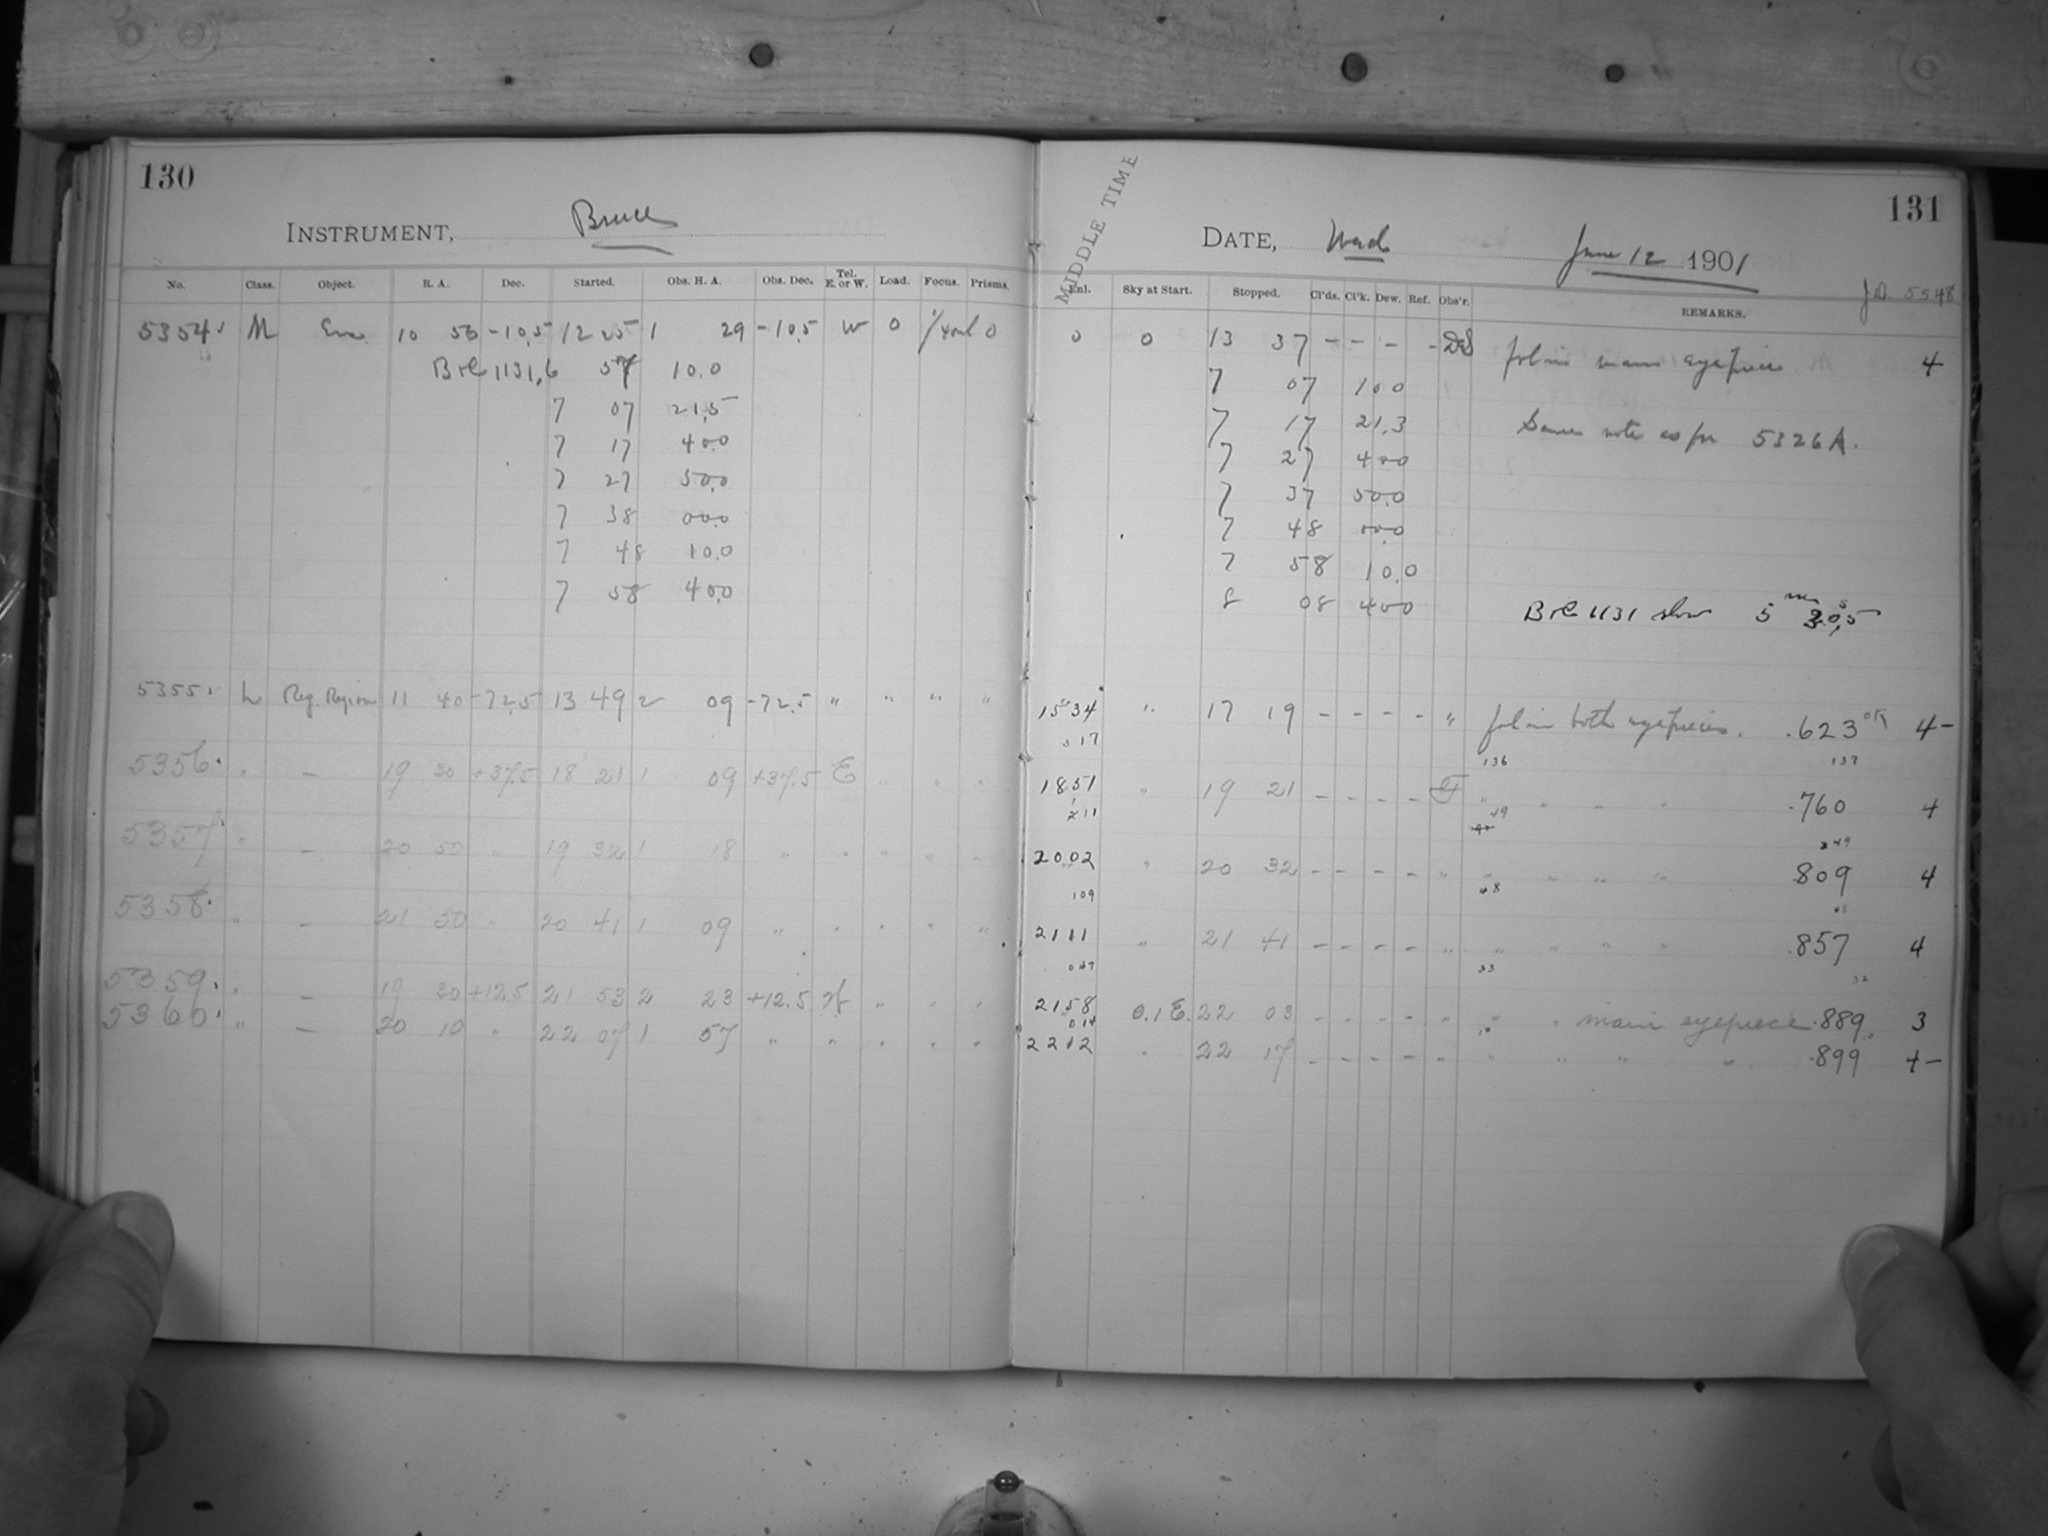 130
INSTRUMENT, Bruce
No. Class. Object. R. A. Dec. Started. Obs. H. A. Obs. Dec. Tel. E. or W. Load. Focus. Prisms.
5354 M Eros 10 56 -10.5 12 25 1 29 -10.5 W 0 0
B&C 1131, 6 57 10.0
7 07 21.5
7 17 40.0
7 27 50.0
7 38 00.0
7 48 10.0
7 58 40.0
5355 L Reg. Region 11 40 -72.5 13 49 2 09 -72.5 " " " "
5356 " - 19 30 +37.5 18 21 1 09 +37.5 E " " "
5357 " - 20 50 " 19 32 1 18 " " " " "
5358 " - 21 50 " 20 41 1 09 " " " " "
5359 " - 19 30 +12.5 21 53 2 23 +12.5 W " " "
5360 " - 20 10 " 22 07 1 57 " " " " "
131
MIDDLE TIME
DATE, Wed June 12 1901
J.D. 5548
Enl. Sky at Start. Stopped. Cl'ds. Cl'k. Dew. Ref. Obs'r. REMARKS.
0 0 13 37 - - - - DS fol in main eyepiece 4
7 07 10.0
7 17 21.3 Same note as for 5326A.
7 27 40.0
7 37 50.0
7 48 00.0
7 58 10.0
8 08 40.0 B&C 1131 slow 5 m 30.5 s
15 34 " 17 19 - - - - " fol in both eyepieces. .623 4-
317 136 137
1851 " 19 21 - - - - " " " " .760 4
111 49 49
2002 " 20 32 - - - - " " " " " .809 4
109 48 48
2111 " 21 41 - - - - " " " " " .857 4
047 33 32
2158 0.1 E. 22 03 - - - - " " " main eyepiece .889 3
014 10
2212 " 22 17 - - - - " " " " " .899 4-